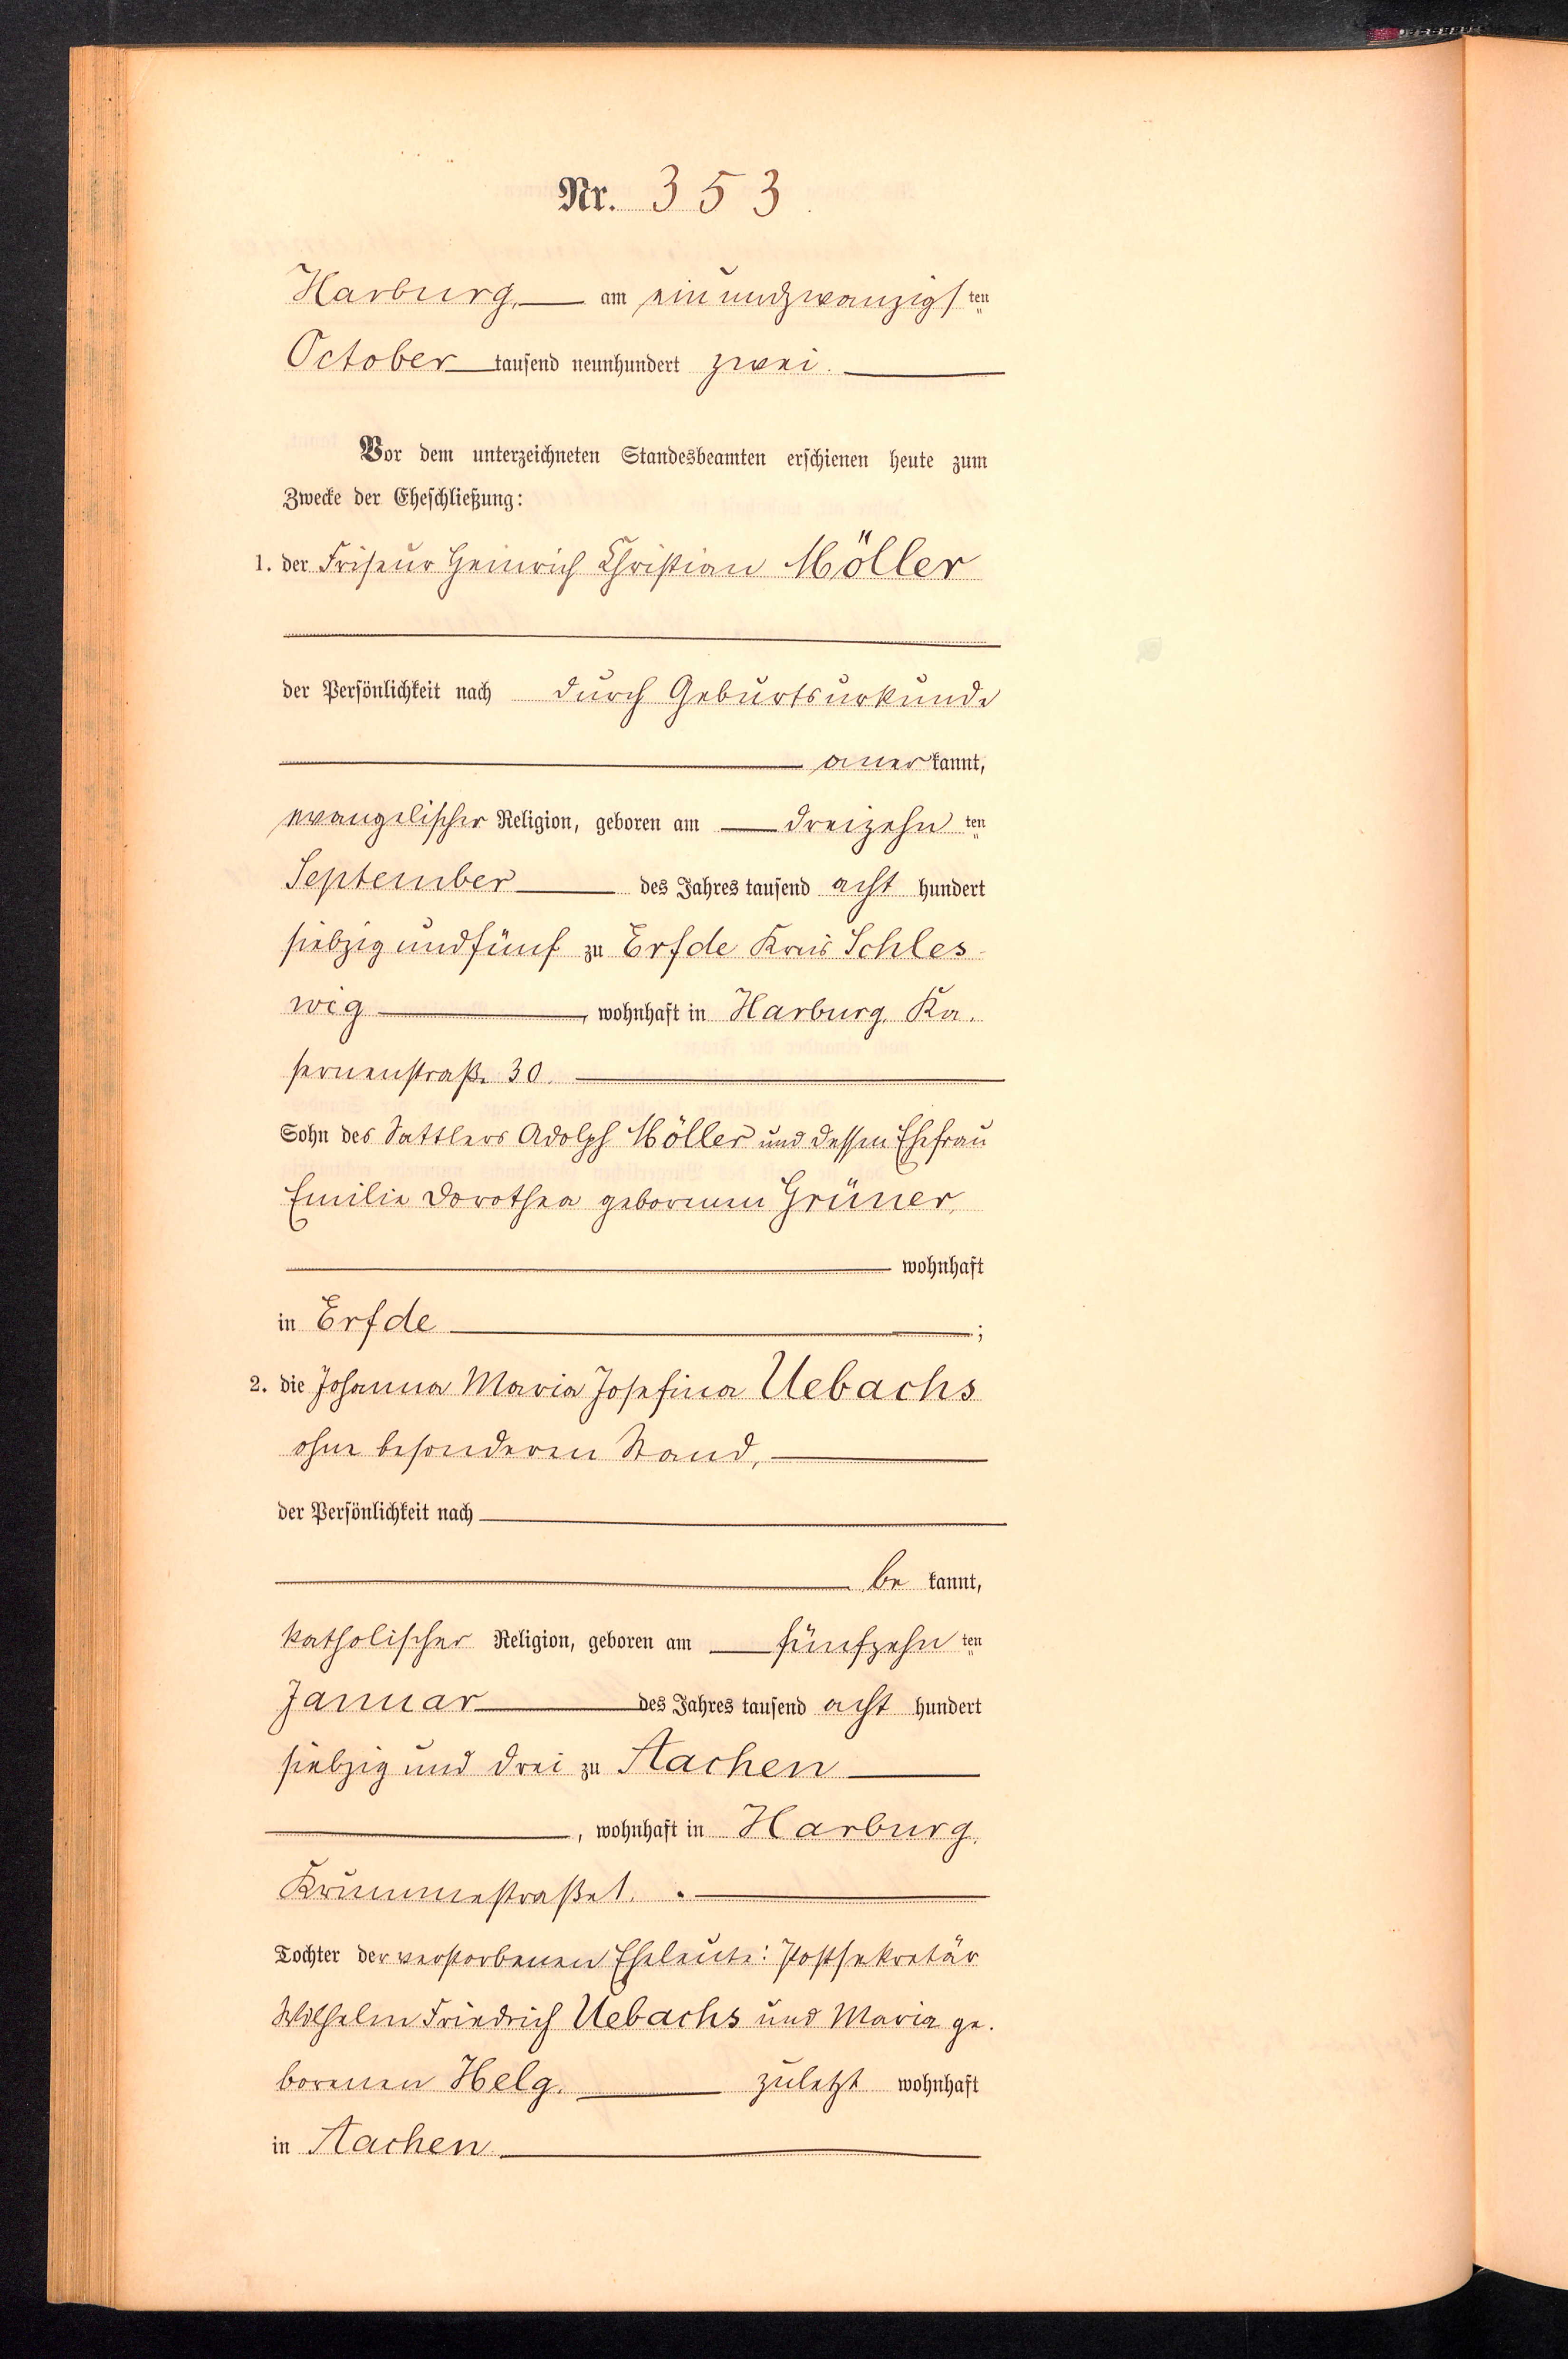 Nr. 353
Harburg, am einundzwanzigsten
October tausend neunhundert zwei.
Vor dem unterzeichneten Standesbeamten erschienen heute zum
Zwecke der Eheschließung:
1. der Friseur Heinrich Christian Möller
der Persönlichkeit nach durch Geburtsurkunde
anerkannt,
evangelischer Religion, geboren am dreizehn ten
September des Jahres tausend acht hundert
siebzig und fünf zu Erfde Kreis Schles-
wig, wohnhaft in Harburg, Ka-
sernenstraße 30.
Sohn des Sattlers Adolph Möller und dessen Ehefrau
Emilie Dorothea geborenen Grüner,
wohnhaft
in Erfde ;
2. die Johanna Maria Josefina Uebachs
ohne besonderen Stand,
der Persönlichkeit nach
be kannt,
katholischer Religion, geboren am fünfzehn ten
Januar des Jahres tausend acht hundert
siebzig und drei zu Aachen
, wohnhaft in Harburg,
Krummestraße 1.
Tochter der verstorbenen Eheleute: Postsekretär
Wilhelm Friedrich Uebachs und Maria ge-
borenen Helg, zuletzt wohnhaft
in Aachen